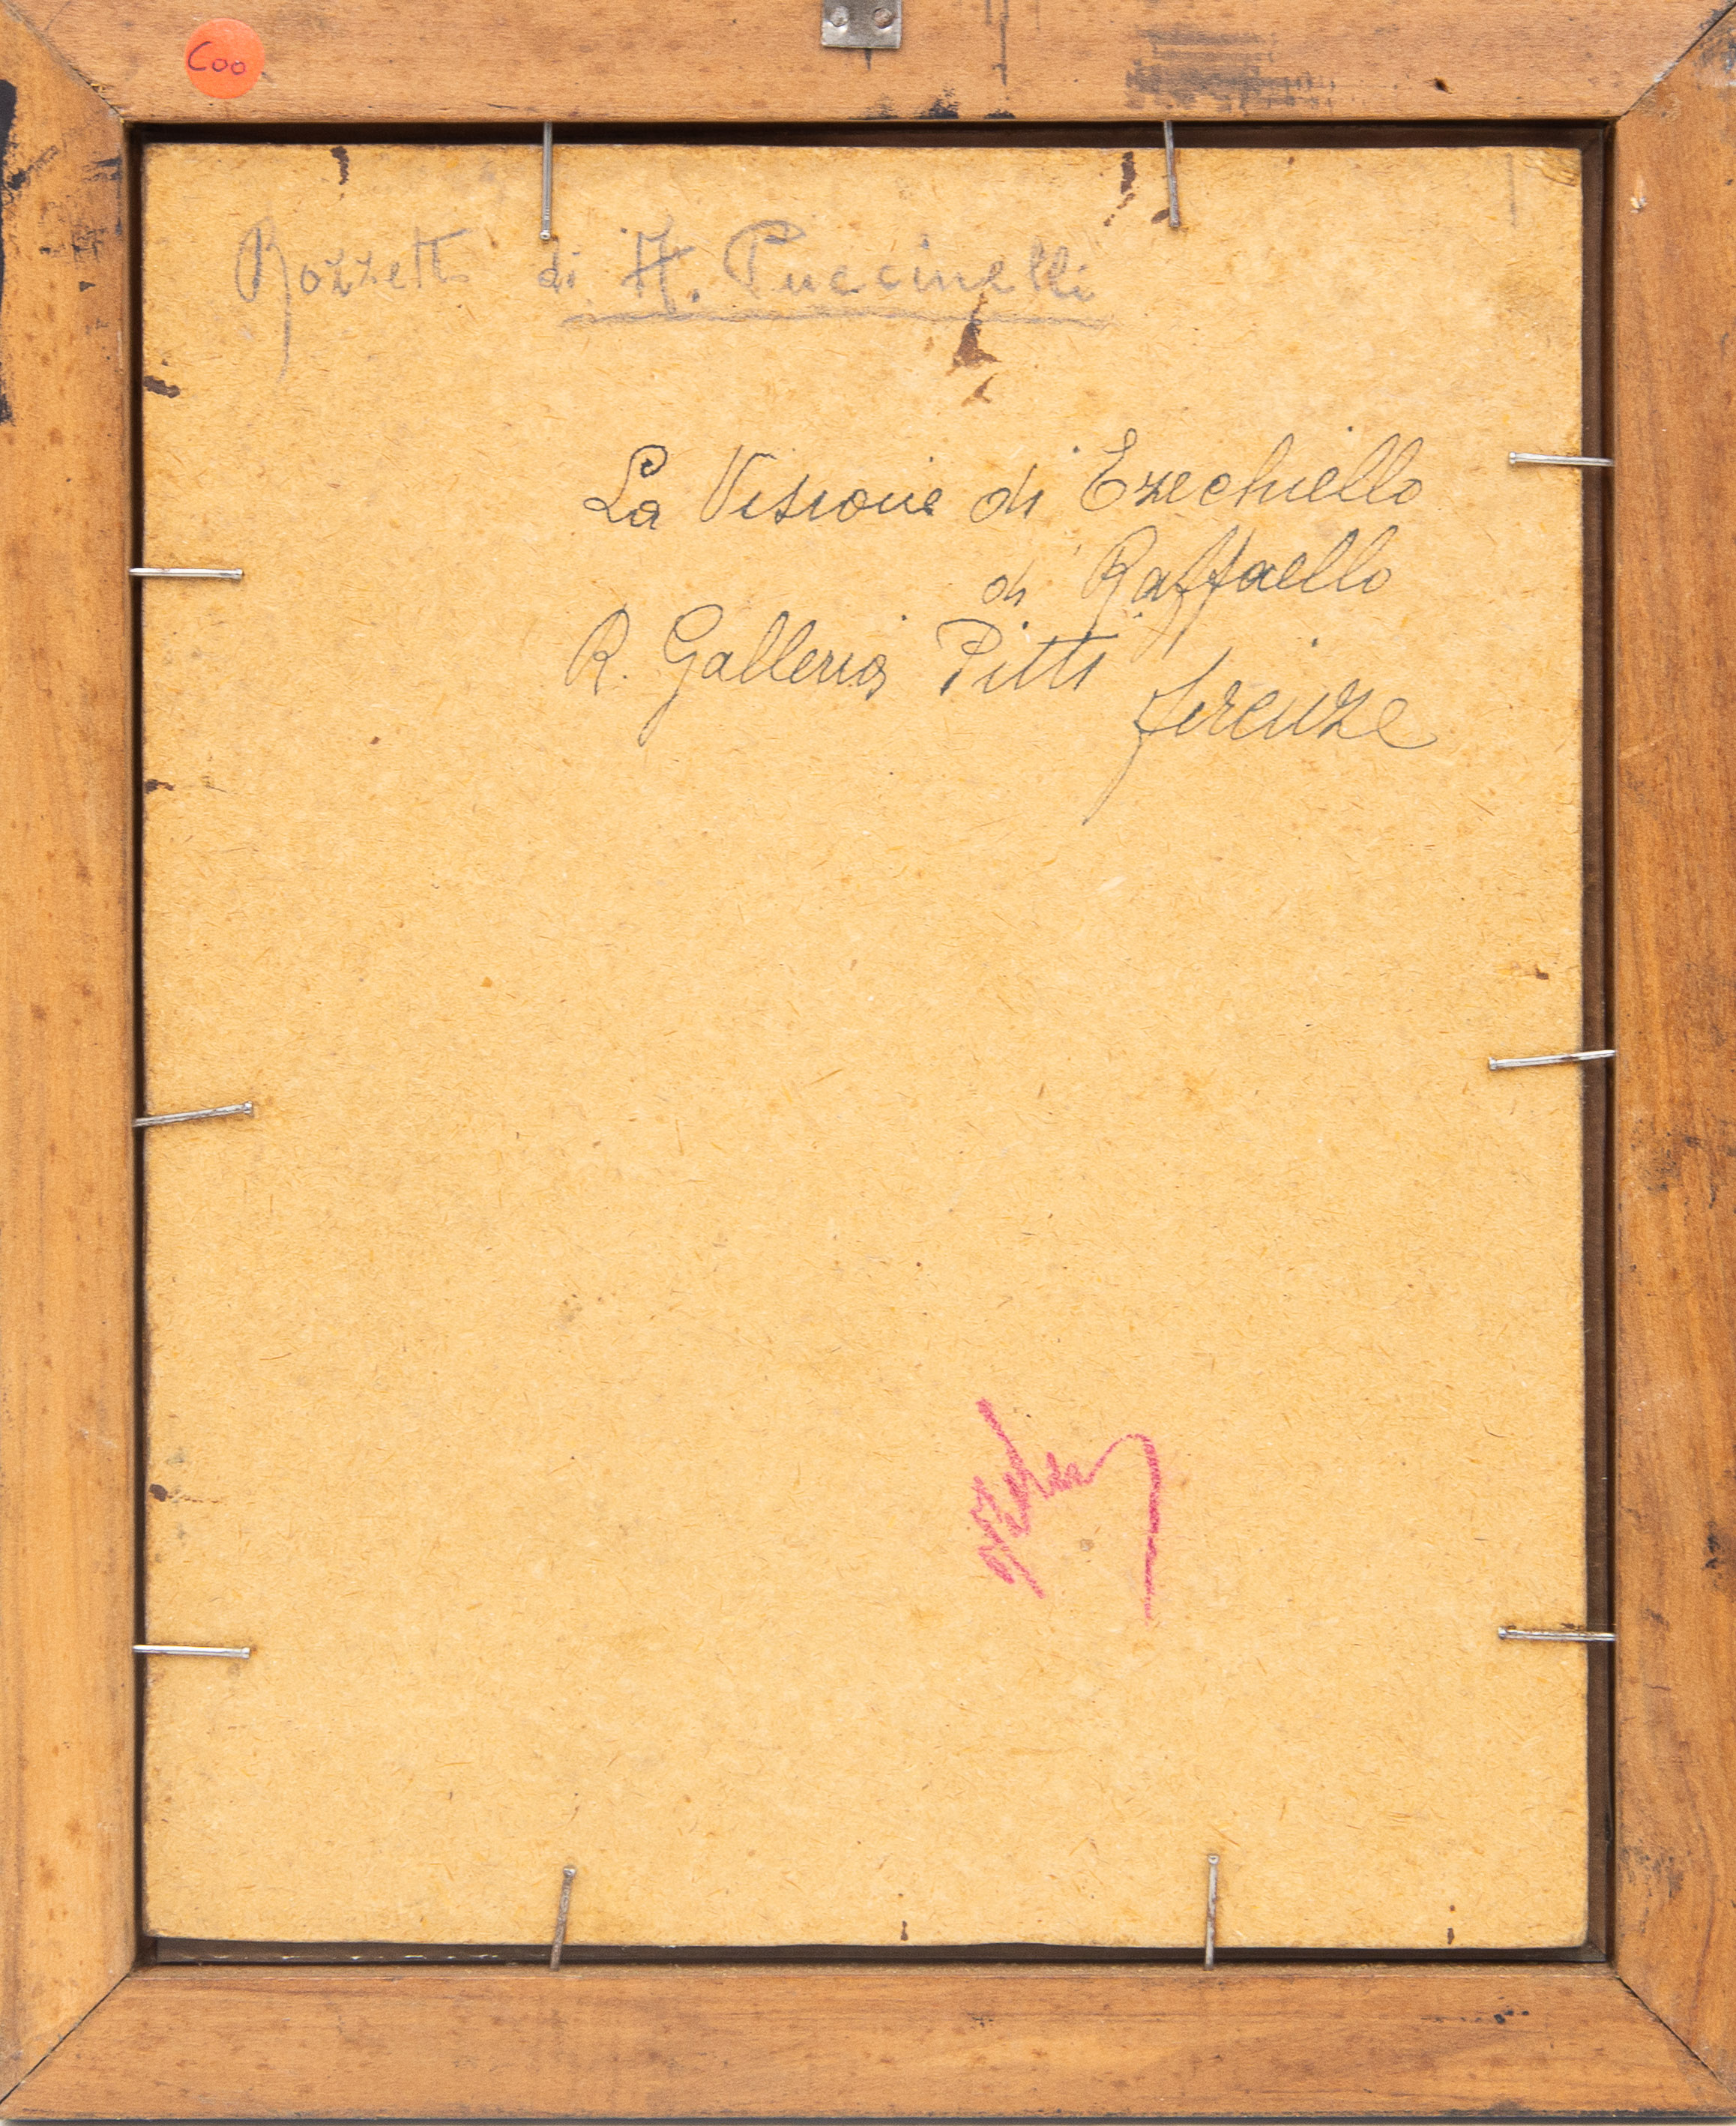 Coo
Bozzetto di A. Puccinelli
La Visione di Ezechiello
di Raffaello
R. Galleria Pitti
Firenze